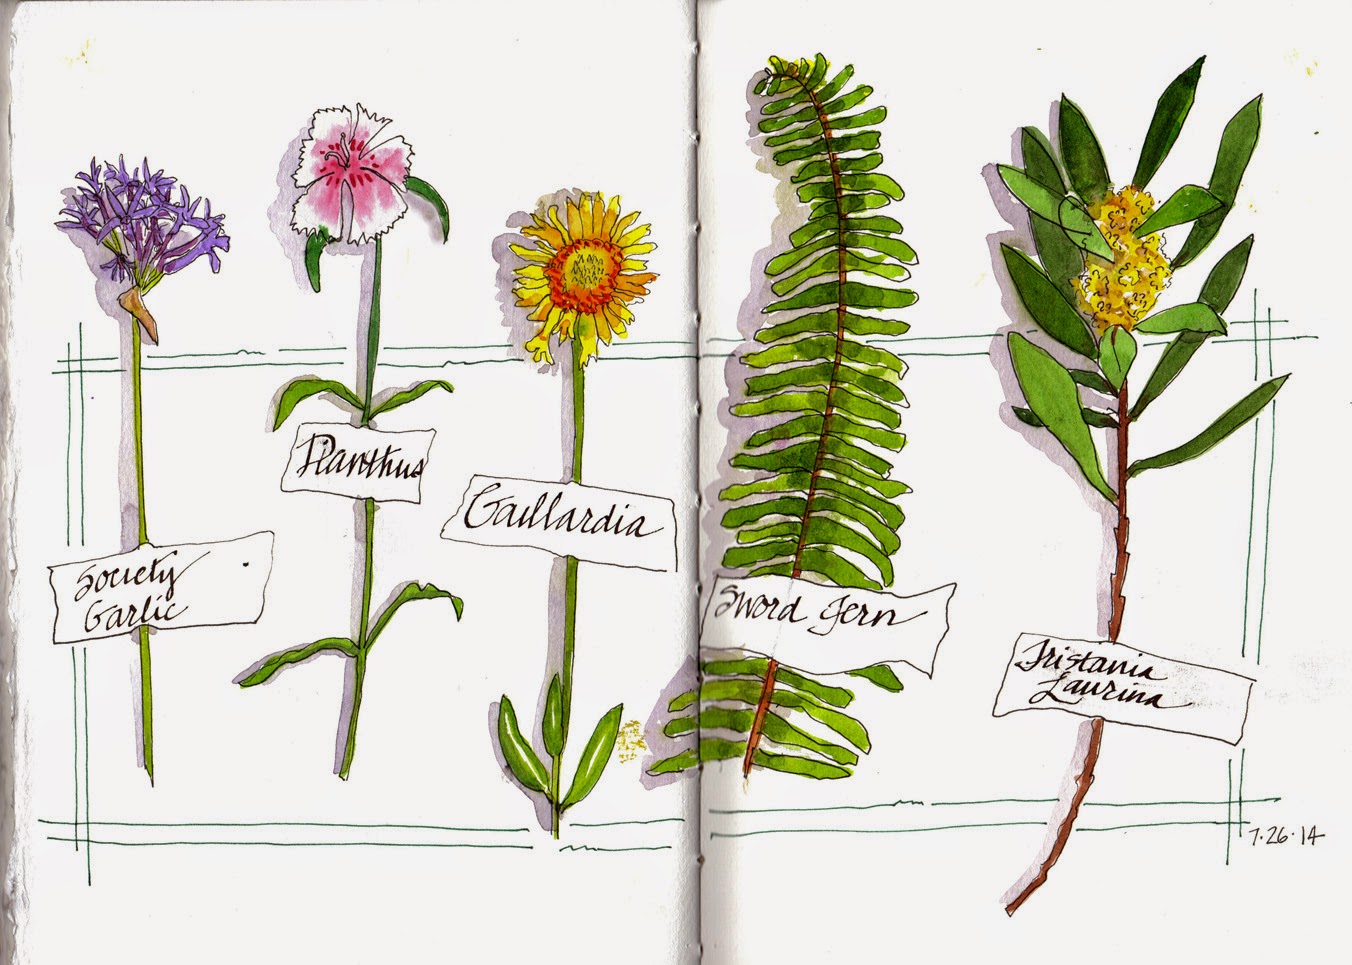 Society
Garlic
Dianthus
Gaillardia
Sword Fern
Tristania
Laurina
7·26·14